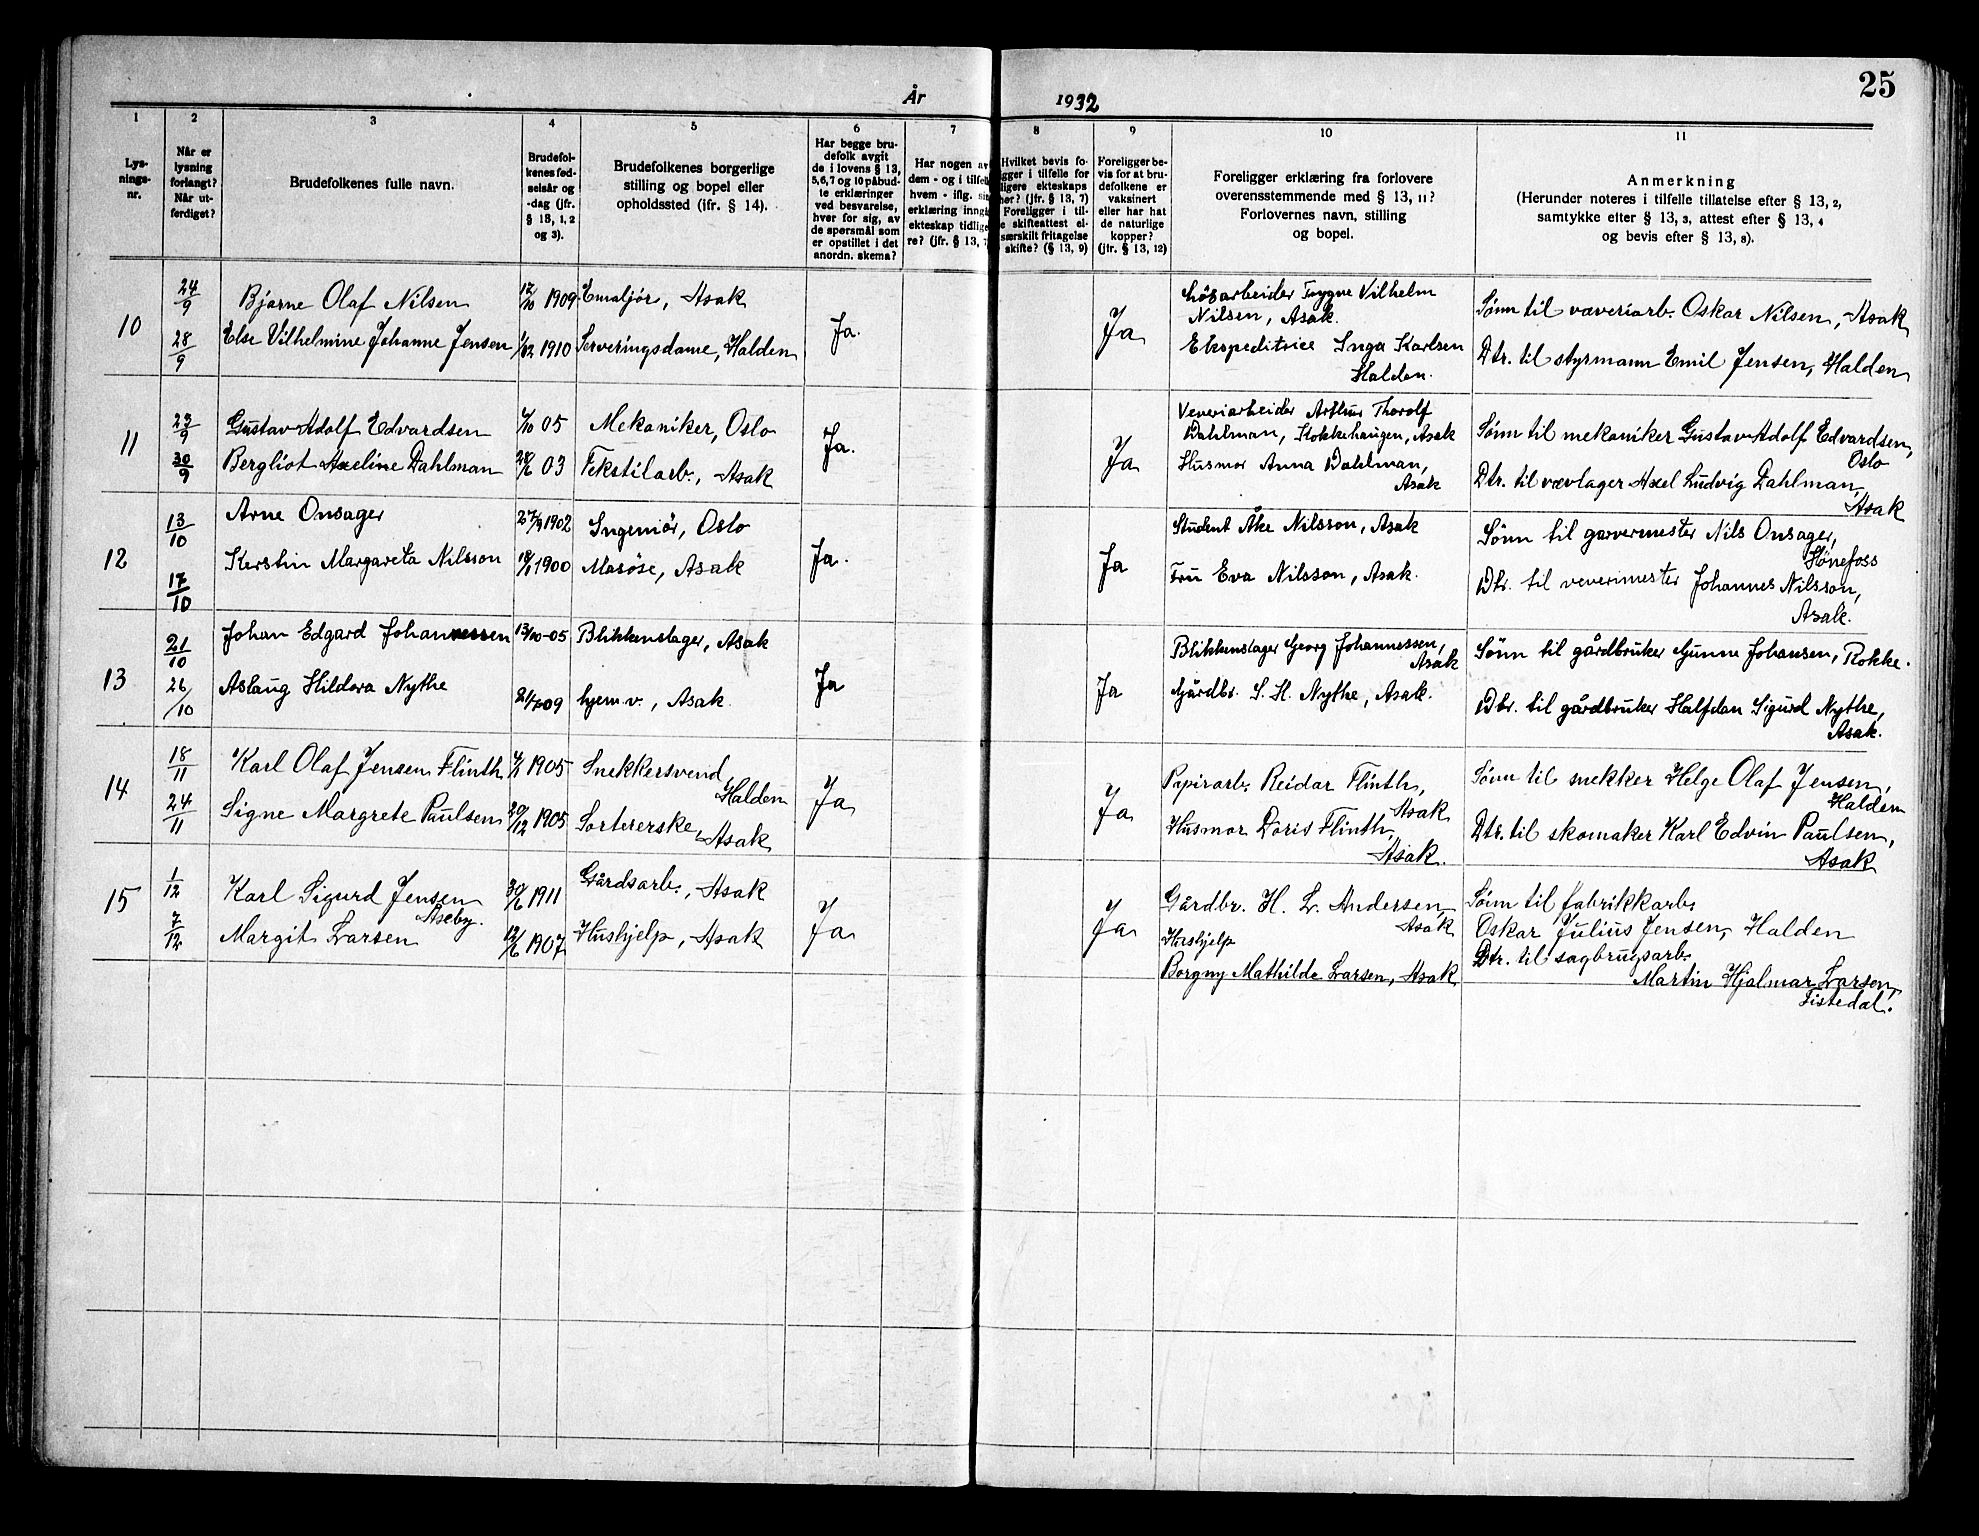 25
År 1932
1 2 3 4 5 6 7 8 9 10 11
Lys-
nings-
nr.
Når er
lysning
forlangt?
Når ut-
ferdiget?
Brudefolkenes fulle navn.
Brudefol-
kenes fød-
selsår og
-dag (jfr.
§ 13, 1, 2
og 3).
Brudefolkenes borgerlige
stilling og bopel eller
opholdssted (ifr. § 14).
Har begge bru-
defolk avgit
de i lovens § 13,
5,6,7 og 10 påbud-
te erklæringer
ved besvarelse,
hver for sig, av
de spørsmål som
er opstillet i det
anordn. skema?
Har nogen av
dem - og i tilfelle
hvem - iflg. sin
erklæring inngå
ekteskap tidlige
re? (jfr. § 13, 7
Hvilket bevis fo-
gger i tilfelle for
ligere ekteskaps
hør? (jfr. § 13, 7)
Foreligger i til-
e skifteattest el-
særskilt fritagelse
skifte? (§ 13, 9)
Foreligger be-
vis for at bru-
defolkene er
vaksinert
eller har hat
de naturlige
kopper?
(jfr. § 13, 12)
Foreligger erklæring fra forlovere
overensstemmende med § 13, 11?
Forlovernes navn, stilling
og bopel.
Anmerkning
(Herunder noteres i tilfelle tillatelse efter § 13, 2,
samtykke efter § 13, 3, attest efter § 13, 4
og bevis efter § 13, 8).
10
24/9
28/9
Bjarne Olaf Nilsen
Else Vilhelmine Johanne Jensen
12/10 1909
1/02 1910
Emaljør, Asak
Serveringsdame, Halden
Ja.
Ja
Løsarbeider Trygve Vilhelm
Nilsen, Asak.
Ekspeditrice Inga Karlsen
Halden.
Sønn til væveriarb. Oskar Nilsen, Asak
Dtr. til styrmann Emil Jensen, Halden
11
23/9
30/9
Gustav Adolf Edvardsen
Bergliot Axeline Dahlman
/10 05
03
Mekaniker, Oslo
Tekstilarb., Asak
Ja.
Ja
Veveriarbeider Arthur Thorolf
Dahlman, Stokkehaugen, Asak
Husmor Anna Dahlman,
Asak
Sønn til mekaniker Gustav Adolf Edvardsen,
Oslo
Dtr. til vævlager Axel Ludvig Dahlman,
Asak
12
13/10
17/10
Arne Onsager
Kerstin Margareta Nilsson
27/9 1902
18/1 1900
Ingeniør, Oslo
Masøse, Asak
Ja.
Ja
Student Åke Nilsson, Asak
Fru Eva Nilsson, Asak.
Sønn til garvermester Nils Onsager,
Hönefoss
Dtr. til vevermester Johannes Nilsson,
Asak.
13
21/10
26/10
Johan Edgard Johannessen
Aslaug Hildora Nythe
13/10-05
09
Blikkenslager, Asak
hjem.v., Asak.
Ja
Ja
Blikkenslager Georg Johannessen,
Asak
Gårdbr. S. H. Nythe, Asak.
Sønn til gårdbruker Gunne Johansen, Rokke.
Dtr. til gårdbruker Halfdan Sigurd Nythe,
Asak.
14
18/11
24/11
Karl Olaf Jensen Flinth
Signe Margrete Paulsen
1905
20/12 1905
Snekkersvend,
Halden
Sortererske,
Asak
Ja
Ja
Papirarb. Reidar Flinth,
Asak
Husmor Doris Flinth,
Asak.
Sønn til snekker Helge Olaf Jensen,
Halden
Dtr. til skomaker Karl Edvin Paulsen,
Asak
15
1/12
7/12
Karl Sigurd Jensen
Aseby.
Margit Larsen
30/6 1911
12/6 1907
Gårdsarb., Asak
Hushjelp, Asak
Ja
Ja
Gårdbr. H. L. Andersen,
Asak
Hushjelp
Borgny Mathilde Larsen, Asak
Sønn til fabrikkarb.
Oskar Julius Jensen, Halden
Dtr. til sagbrugsarb.
Martin Hjalmar Larsen,
Tistedal.